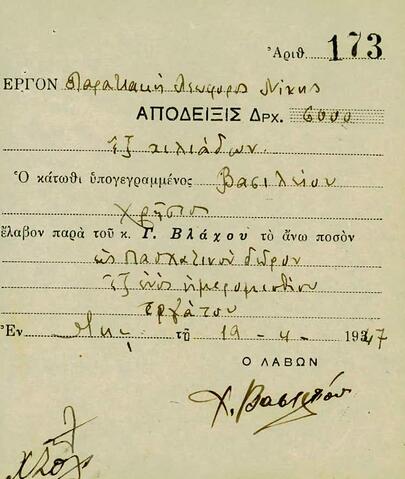 Ἀριθ. 173
ΕΡΓΟΝ Παραλιακή Λεωφόρος Νίκης
ΑΠΟΔΕΙΞΙΣ ΔΡΧ. 6000
Ἕξ χιλιάδων
Ὁ κάτωθι ὑπογεγραμμένος Βασιλείου
Χρῆστος
ἔλαβον παρὰ τοῦ κ. Γ. Βλάχου τὸ ἄνω ποσὸν
ὡς Πασχαλινοῦ δώρου
ἐξ ἑνὸς ἡμερομισθίου
ἐργάτου
Ἐν τῇ 19 - 4 - 1947
Ο ΛΑΒΩΝ
Χ. Βασιλείου